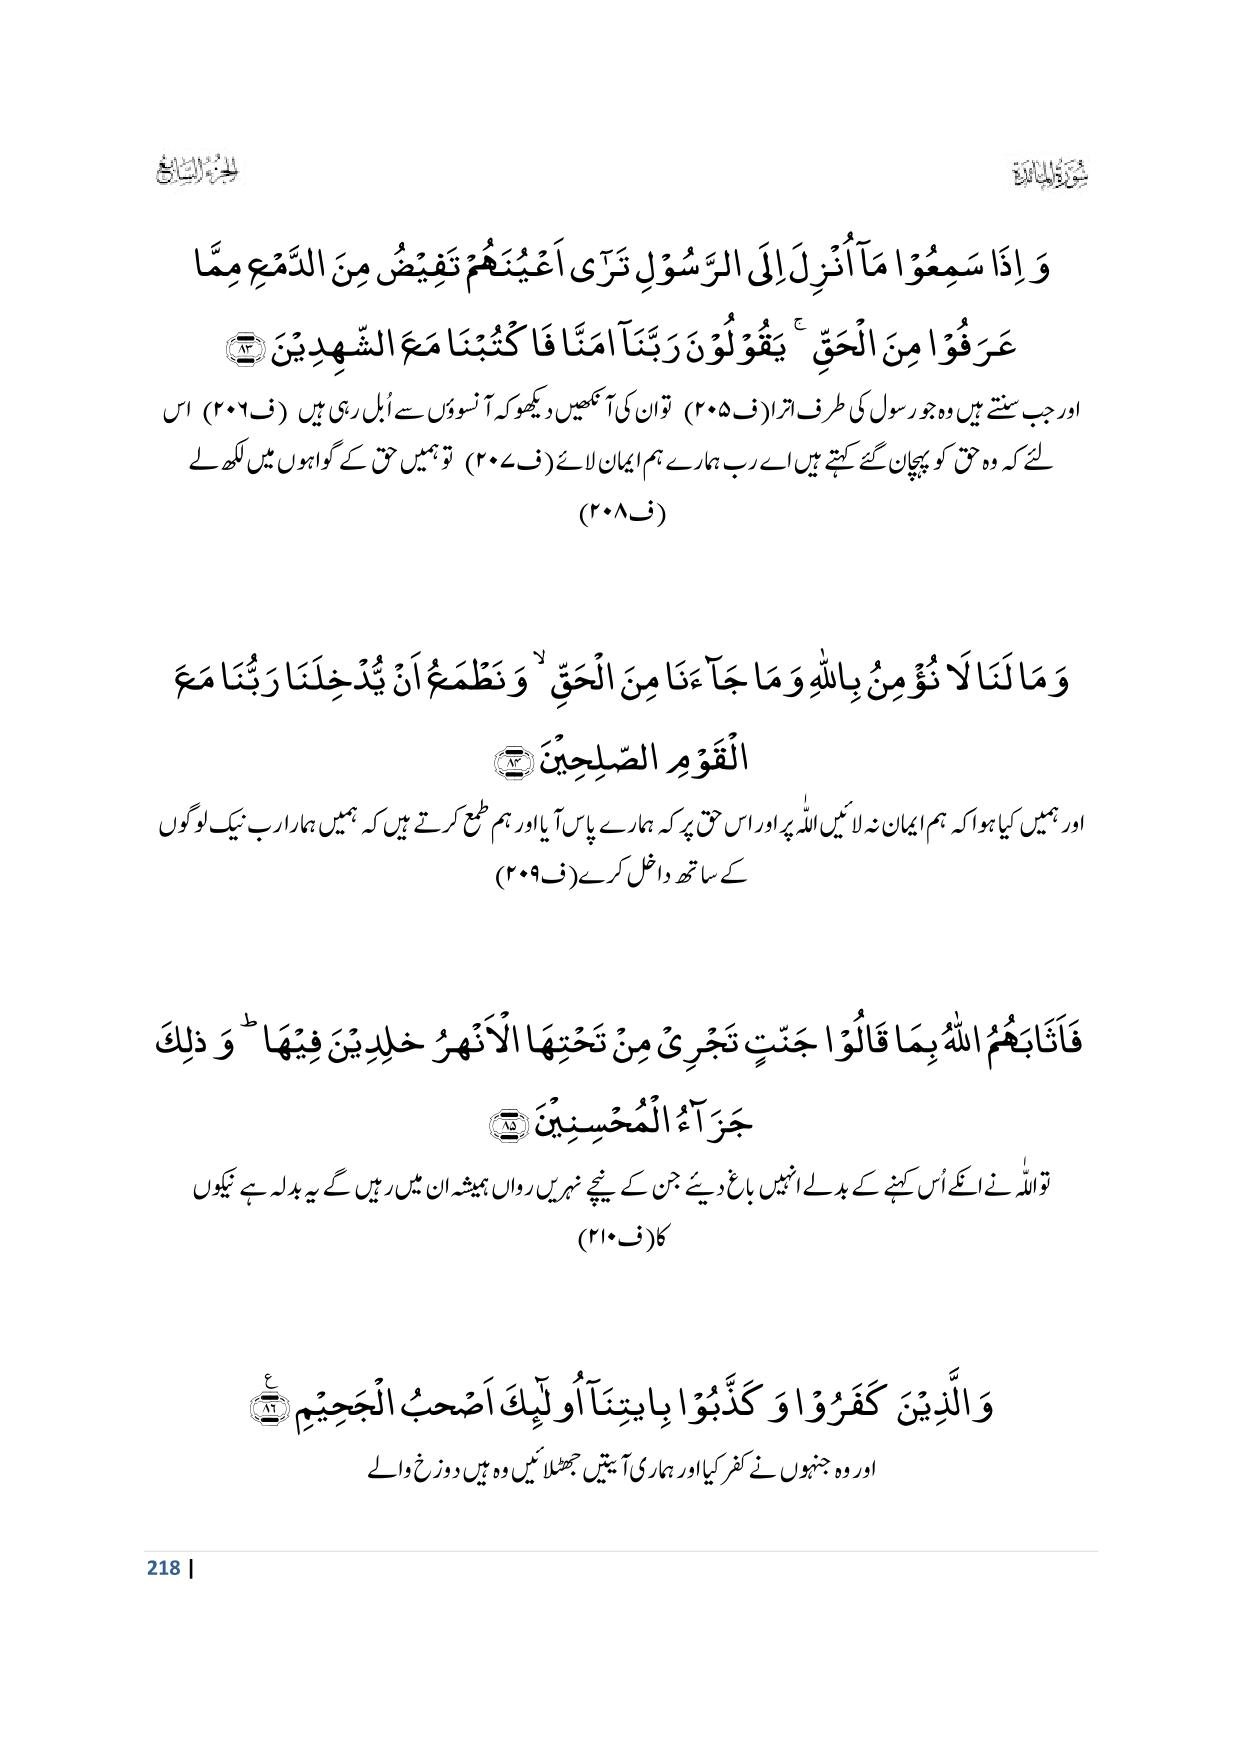 سُوْرَةُ الْمَائِدَة
الجزء السابع
وَ اِذَا سَمِعُوْا مَاۤ اُنْزِلَ اِلَى الرَّسُوْلِ تَرٰۤى اَعْیُنَهُمْ تَفِیْضُ مِنَ الدَّمْعِ مِمَّا
عَرَفُوْا مِنَ الْحَقِّ ۚ یَقُوْلُوْنَ رَبَّنَاۤ اٰمَنَّا فَاكْتُبْنَا مَعَ الشّٰهِدِیْنَ ﴿۸۳﴾
اور جب سنتے ہیں وہ جو رسول کی طرف اترا(ف۲۰۵) تو ان کی آنکھیں دیکھو کہ آنسوؤں سے اُبل رہی ہیں (ف۲۰۶) اس
لئے کہ وہ حق کو پہچان گئے کہتے ہیں اے رب ہمارے ہم ایمان لائے(ف۲۰۷) تو ہمیں حق کے گواہوں میں لکھ لے
(ف۲۰۸)
وَ مَا لَنَا لَا نُؤْمِنُ بِاللّٰهِ وَ مَا جَآءَنَا مِنَ الْحَقِّ ۙ وَ نَطْمَعُ اَنْ یُّدْخِلَنَا رَبُّنَا مَعَ
الْقَوْمِ الصّٰلِحِیْنَ ﴿۸۴﴾
اور ہمیں کیا ہوا کہ ہم ایمان نہ لائیں اللّٰہ پر اور اس حق پر کہ ہمارے پاس آیا اور ہم طمع کرتے ہیں کہ ہمیں ہمارا رب نیک لوگوں
کے ساتھ داخل کرے(ف۲۰۹)
فَاَثَابَهُمُ اللّٰهُ بِمَا قَالُوْا جَنّٰتٍ تَجْرِیْ مِنْ تَحْتِهَا الْاَنْهٰرُ خٰلِدِیْنَ فِیْهَا ؕ وَ ذٰلِكَ
جَزَآءُ الْمُحْسِنِیْنَ ﴿۸۵﴾
تو اللّٰہ نے انکے اُس کہنے کے بدلے انہیں باغ دیئے جن کے نیچے نہریں رواں ہمیشہ ان میں رہیں گے یہ بدلہ ہے نیکوں
کا(ف۲۱۰)
وَ الَّذِیْنَ كَفَرُوْا وَ كَذَّبُوْا بِاٰیٰتِنَاۤ اُولٰٓىِٕكَ اَصْحٰبُ الْجَحِیْمِ ﴿۸۶﴾ ع
اور وہ جنہوں نے کفر کیا اور ہماری آیتیں جھٹلائیں وہ ہیں دوزخ والے
218 |